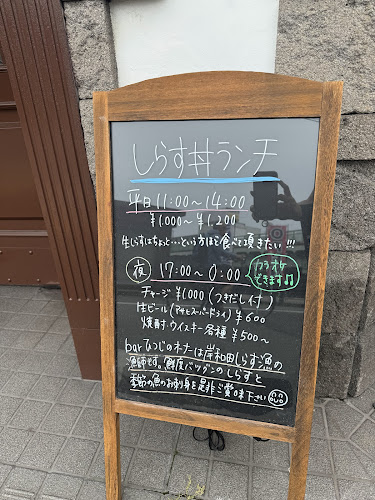 しらす丼ランチ
平日 11:00〜14:00
¥1.000〜¥1,200
生しらすはちょっと…という方ほど食べて頂きたい!!!
夜 17:00〜0:00
カラオケ
できます♫
チャージ ¥1000(つきだし付)
生ビール(アサヒスーパードライ)¥600
焼酎 ウイスキー各種 ¥500〜
bar ひつじのオナーは岸和田しらす漁の
漁師です。鮮度バツグンのしらすと
季節の魚のお刺身を是非ご賞味下さい